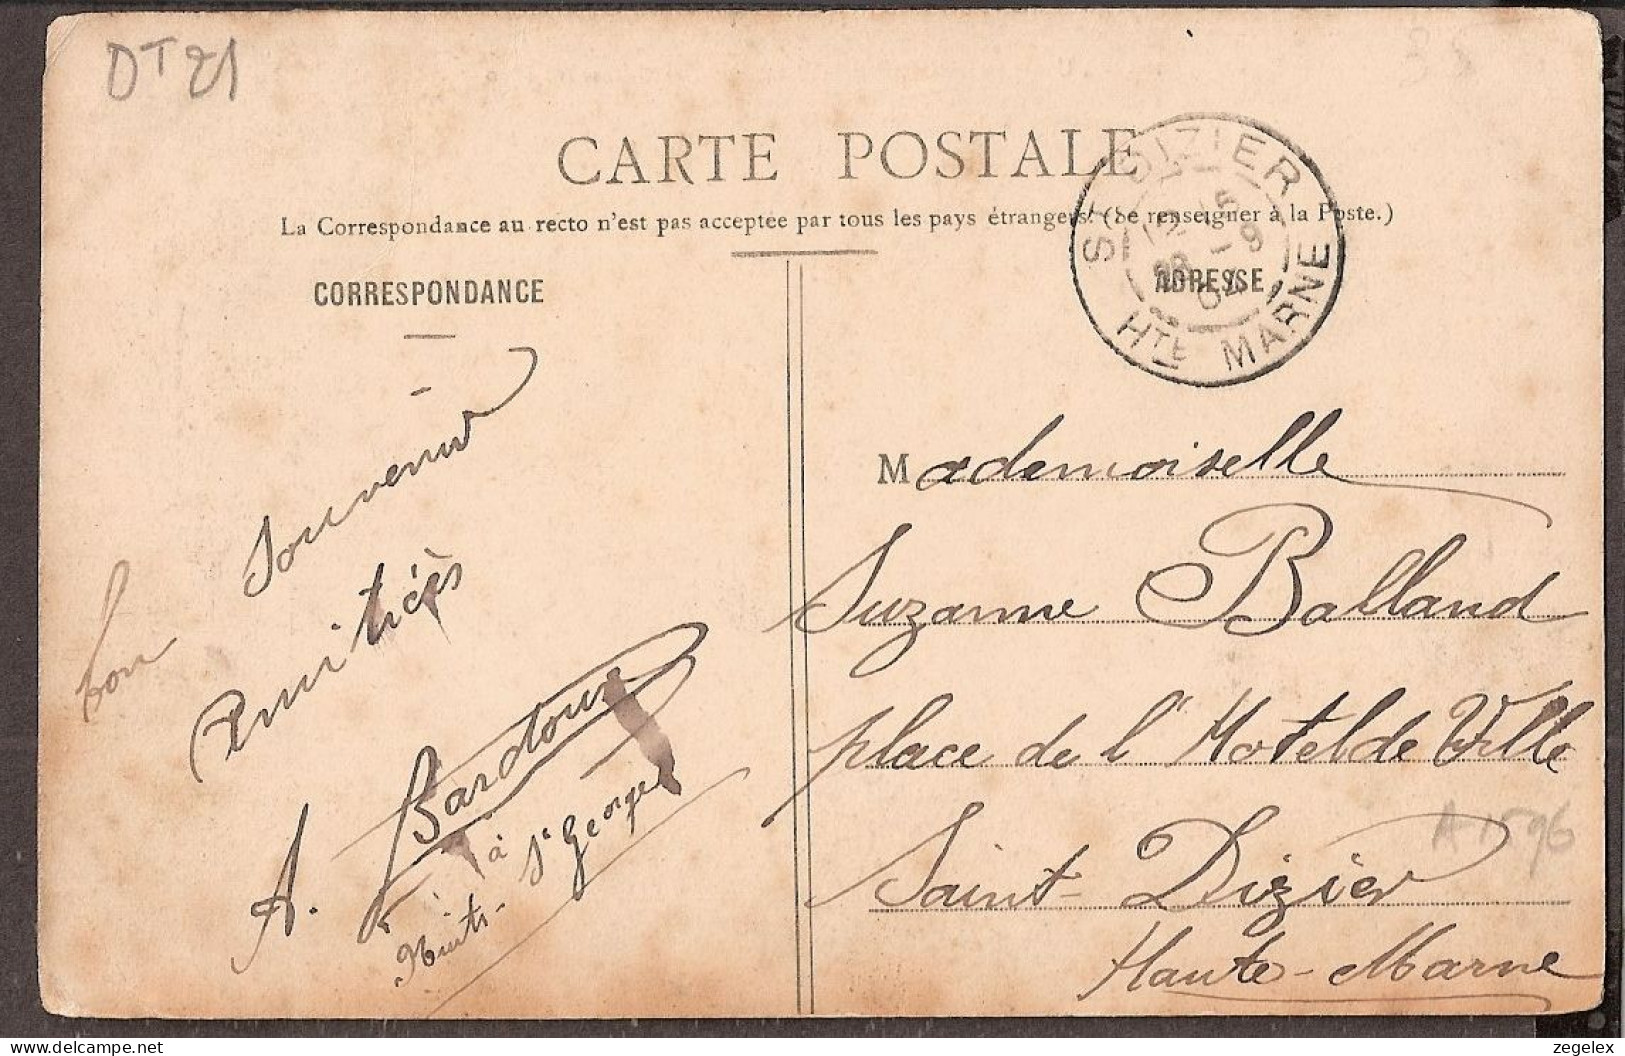 DT 21
CARTE POSTALE
La Correspondance au recto n'est pas acceptée par tous les pays étrangers. (Se renseigner à la Poste.)
CORRESPONDANCE
ADRESSE
ST DIZIER
HTE MARNE
bon Souvenir
Amitiés
A. Bardoux
à
Nuits-St Georges
Mademoiselle
Suzanne Balland
place de l'Hotel de Ville
Saint-Dizier
Haute-Marne
A 1596
zegelex